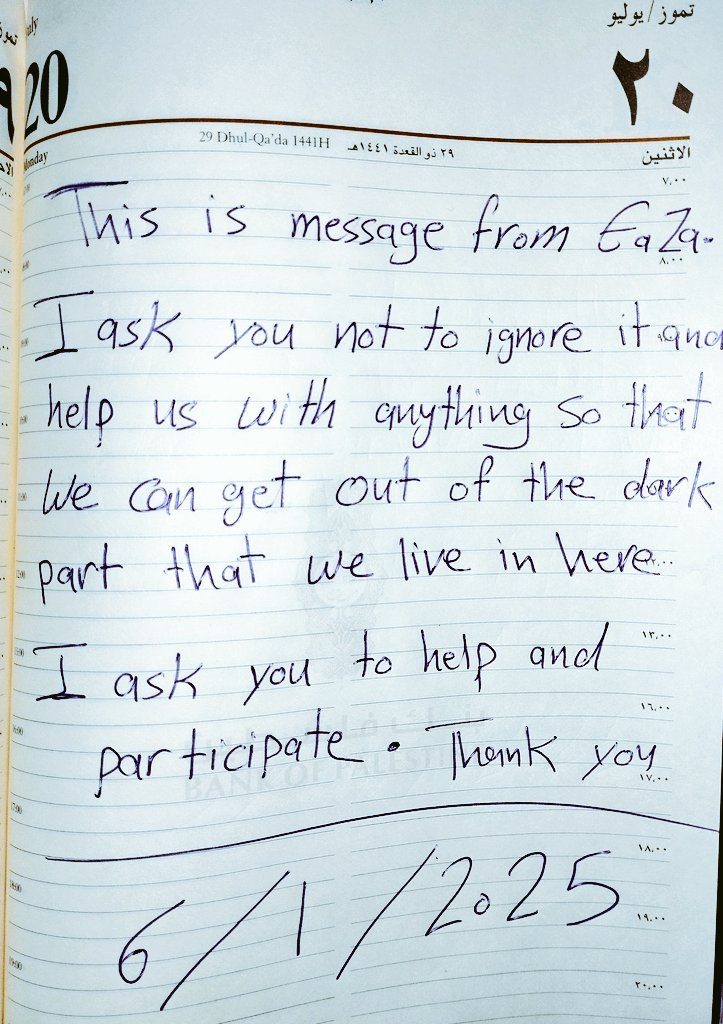 تموز/يوليو
20
٢٠
29 Dhul-Qa'da 1441H
٢٩ ذو القعدة ١٤٤١هـ
الاثنين
٧,٠٠
This is message from GaZa.
٨,٠٠
I ask you not to ignore it and
help us with anything so that
We can get out of the dark
part that we live in here
١٣,٠٠
I ask you to help and
١٦,٠٠
participate. Thank you
BANK OF PALESTINE
١٧,٠٠
17:00
١٨,٠٠
6/1/2025
18:00
١٩,٠٠
19:00
٢٠,٠٠